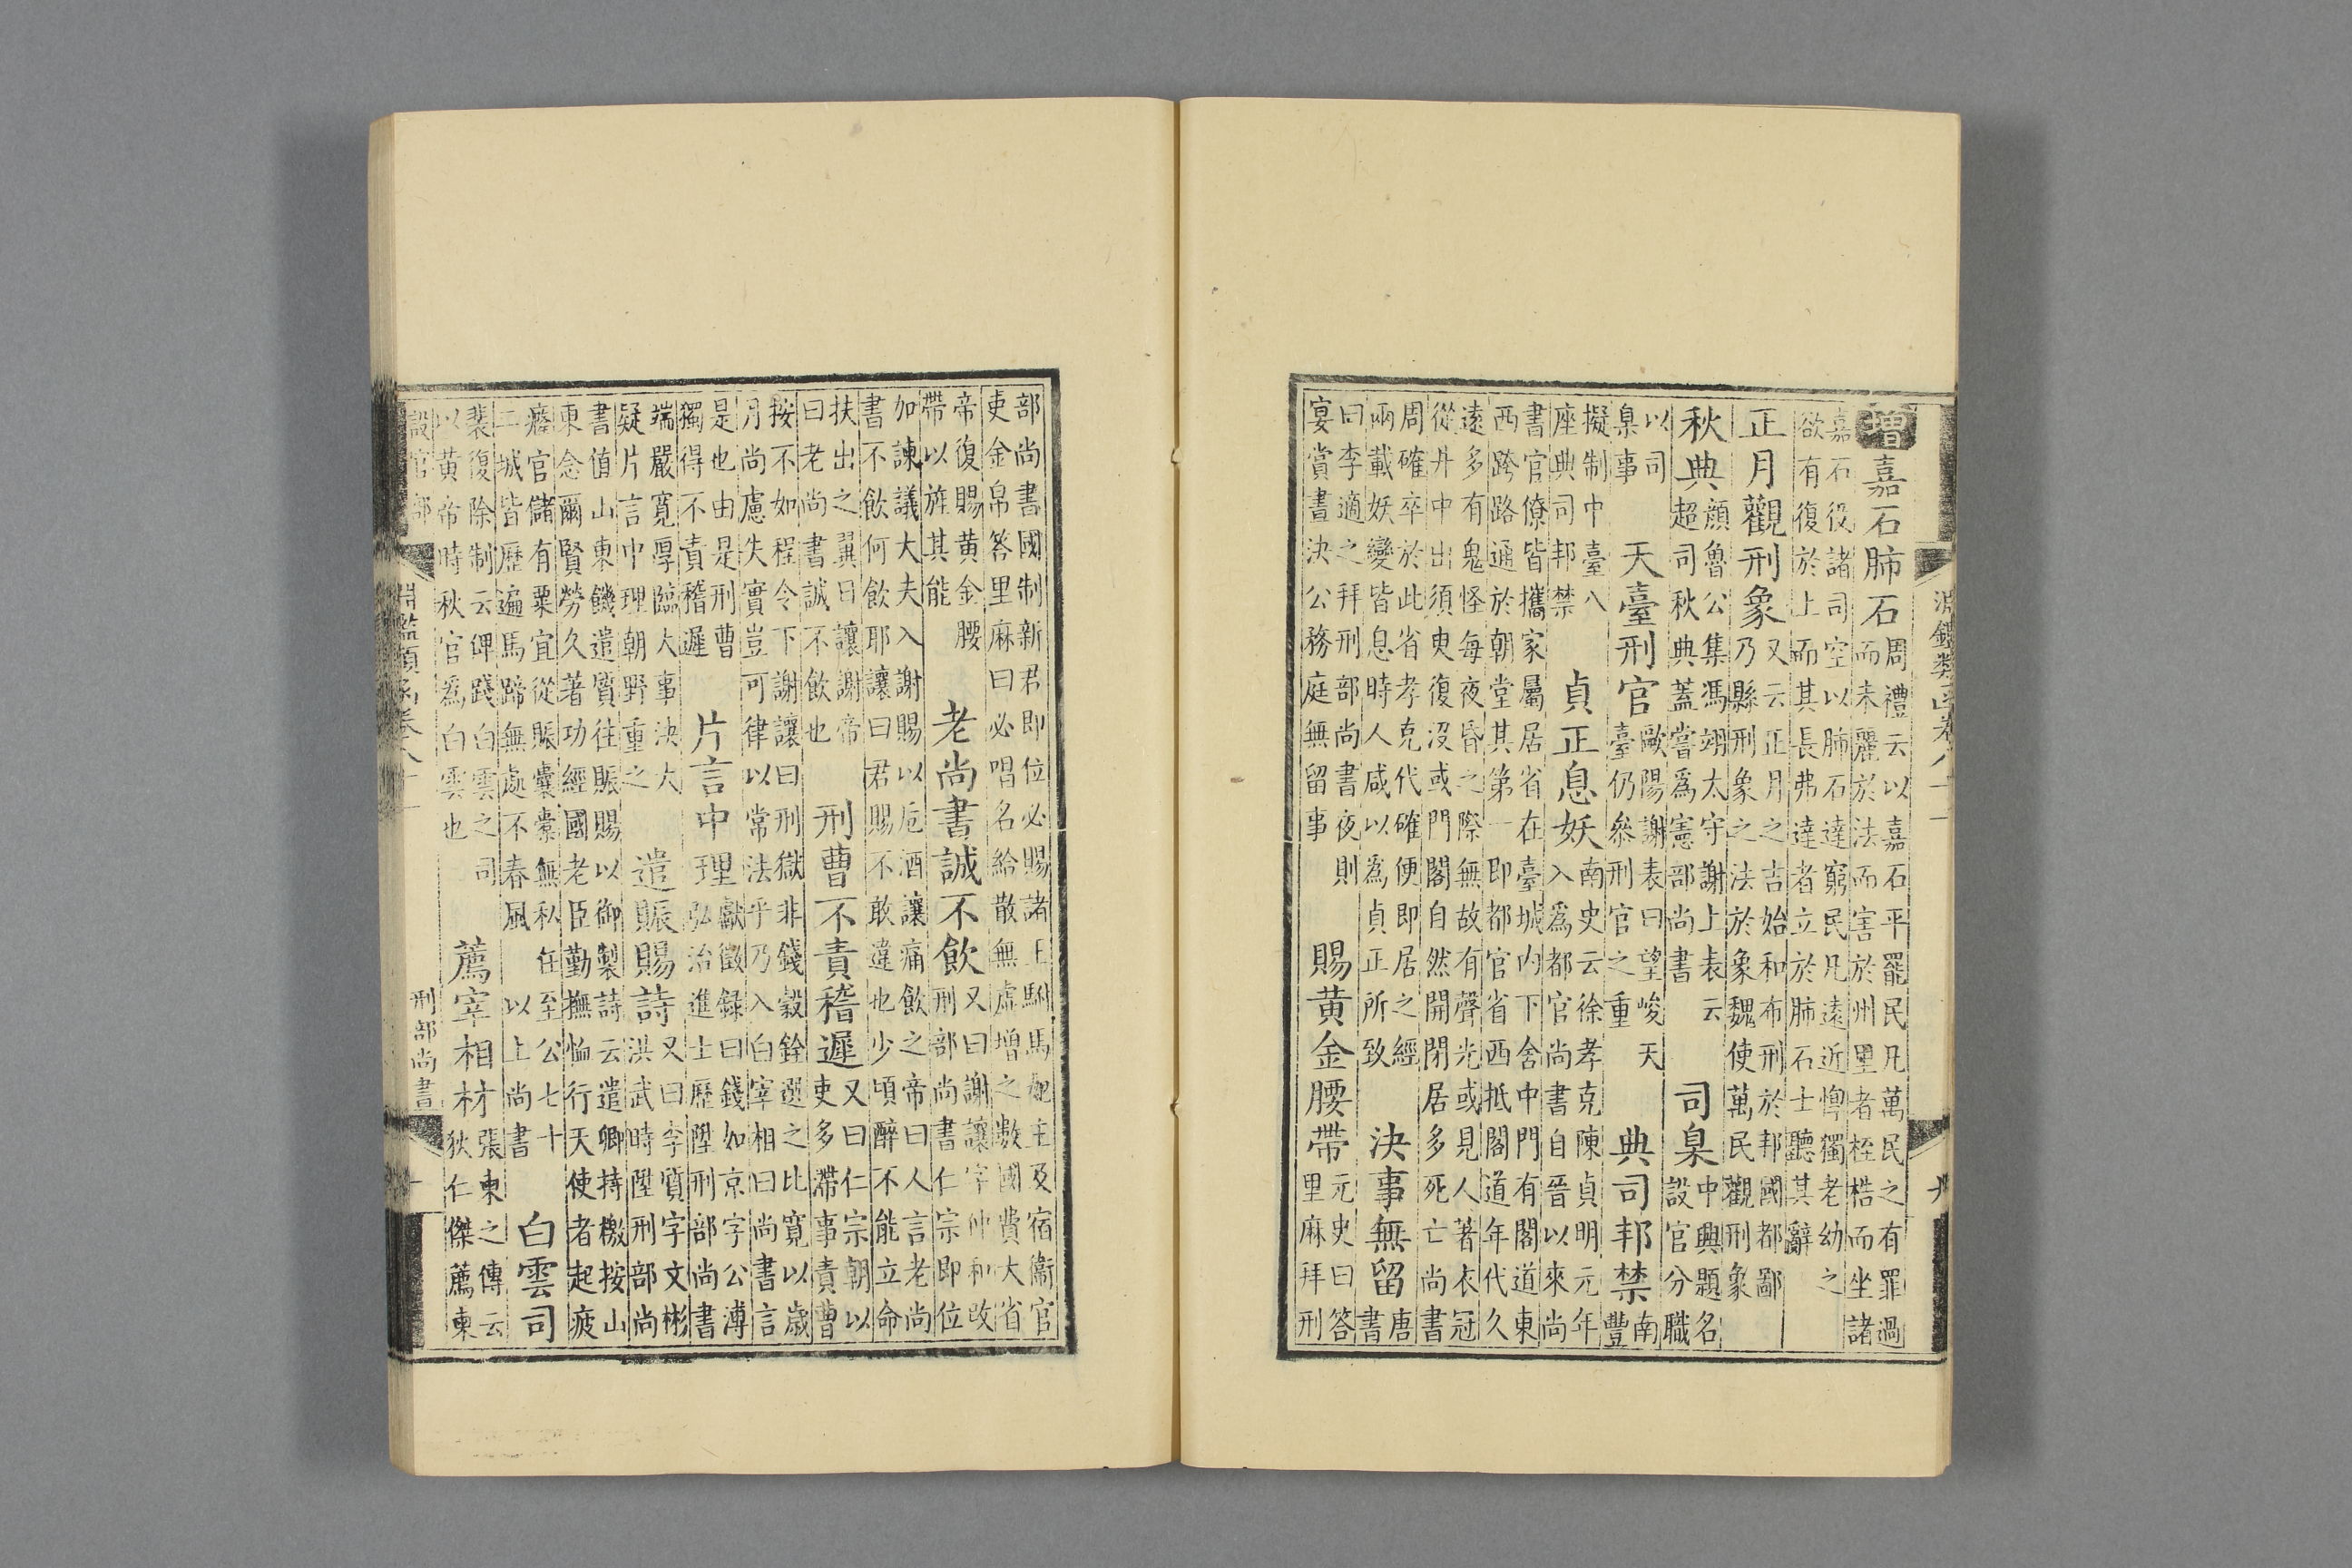 增嘉石肺石
周禮云以嘉石平罷民凡萬民之有罪過
而未麗於法而害於州里者桎梏而坐諸
嘉石役諸司空以肺石達窮民凡遠近惸獨老幼之
欲有復於上而其長弗達者立於肺石士聽其辭
正月觀刑象
又云正月之吉始和布刑於邦國都鄙
乃縣刑象之法於象魏使萬民觀刑象
秋典
顏魯公集馮翊太守謝上表云
超司秋典蓋嘗爲憲部尚書
司臬
中興題名
設官分職
以司
臬事
天臺刑官
歐陽謝表曰望峻天
臺仍叅刑官之重
典司邦禁
南
豐
擬制中臺八
座典司邦禁
貞正息妖
南史云徐孝克陳貞明元年
入爲都官尚書自晉以來尚
書官僚皆攜家屬居省在臺城内下舍中門有閣道東
西跨路通於朝堂其第一即都官省西抵閣道年代久
遠多有鬼怪每夜昏之際無故有聲光或見人著衣冠
從井中出須臾復沒或門閣自然開閉居多死亡尚書
周確卒於此省孝克代確便即居之經
兩載妖變皆息時人咸以爲貞正所致
決事無留
唐
書
曰李適之拜刑部尚書夜則
宴賞晝決公務庭無留事
賜黄金腰帶
元史曰答
里麻拜刑
部尚書國制新君即位必賜諸王駙馬妃主及宿衞官
吏金帛答里麻曰必唱名給散無虛增之數國費大省
帝復賜黄金腰
帶以旌其能
老尚書誠不飲
又曰謝讓字仲和改
刑部尚書仁宗即位
加諫議大夫入謝賜以巵酒讓痛飲之帝曰人言老尚
書不飲何飲耶讓曰君賜不敢違也少頃醉不能立命
扶出之翼日讓謝帝
曰老尚書誠不飲也
刑曹不責稽遲
又曰仁宗朝以
吏多滯事責曹
按不如程令下謝讓曰刑獄非錢穀銓選之比寛以歲
月尚慮失實豈可律以常法乎乃入白宰相曰尚書言
是也由是刑曹
獨得不責稽遲
片言中理
獻徵錄曰錢如京字公溥
弘治進士歷陞刑部尚書
端嚴寛厚臨大事決大
疑片言中理朝野重之
遣賑賜詩
又曰李質字文彬
洪武時陞刑部尚
書值山東饑遣質往賑賜以御製詩云遣卿持檄按山
東念爾賢勞久著功經國老臣勤撫恤行天使者起疲
癃官儲有粟宜從賑囊橐無私在至公七十
二城皆歷遍馬蹄無處不春風
以上尚書
白雲司
裴復除制云碑踐白雲之司
以黄帝時秋官爲白雲也
薦宰相材
張柬之傳云
狄仁傑薦柬
設官部
刑部尚書